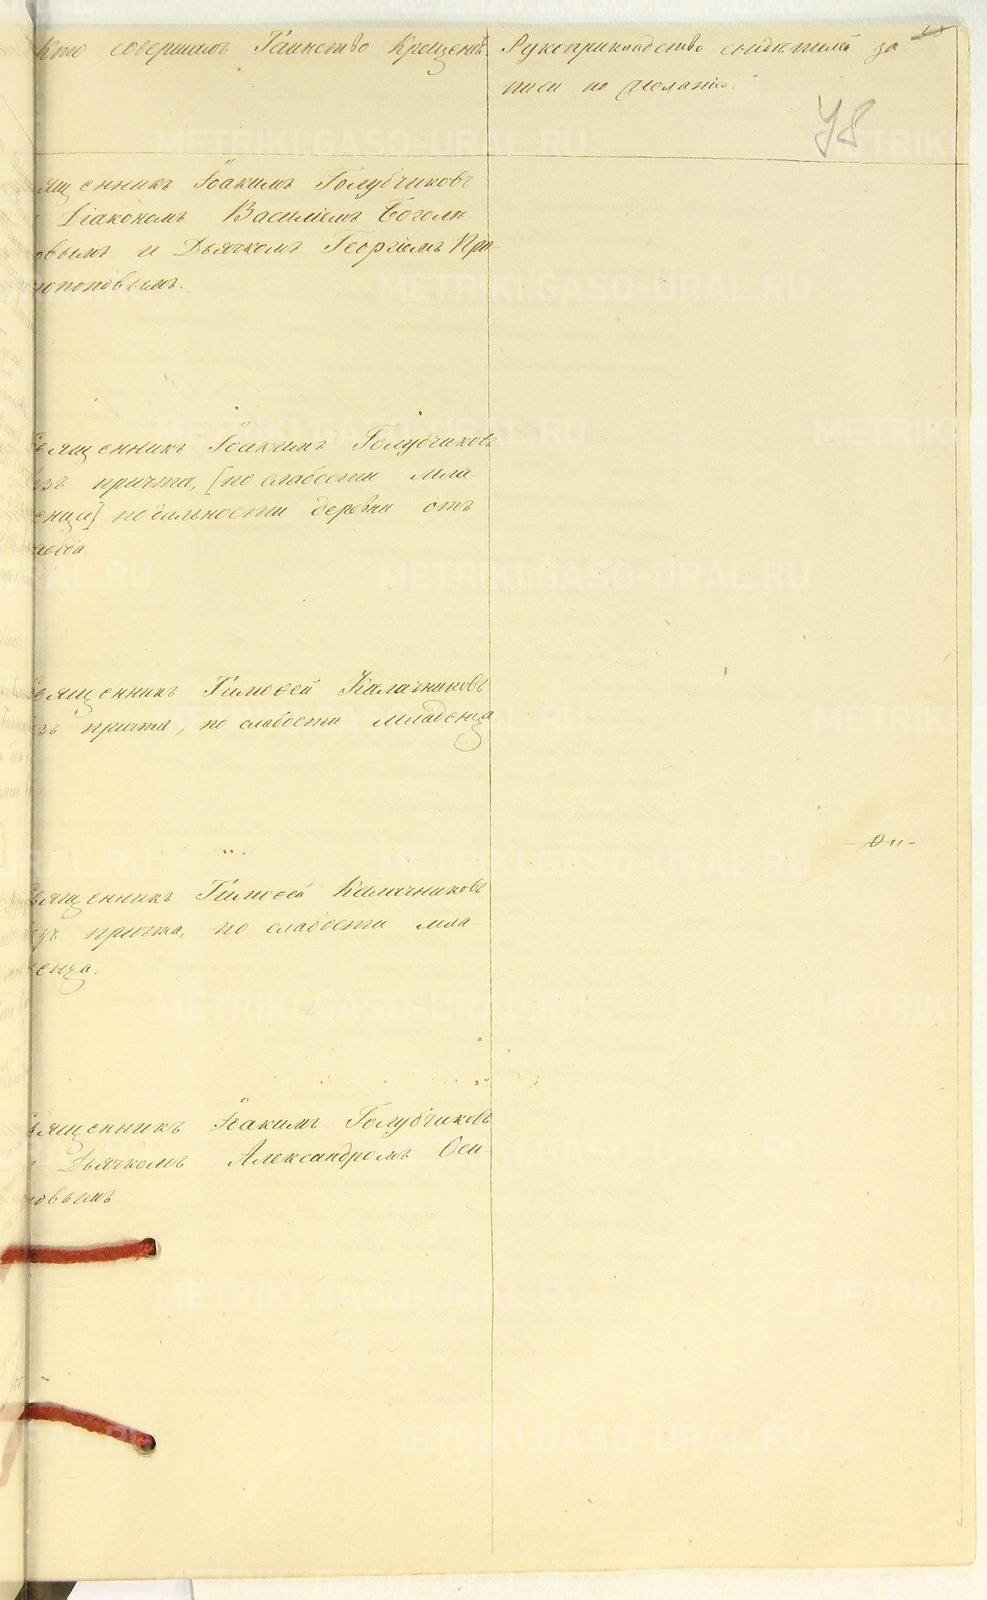 Кто совершалъ Таинство Крещенія.
Рукоприкладство свидѣтелей за
писи по желанію.
78
ященникъ Іоакимъ Голубчиковъ
Діакономъ Василіемъ Боголѣ
овымъ и Дьячкомъ Георгіемъ Про
топоповымъ.
Священникъ Іоакимъ Голубчиковъ
езъ причта, [по слабости мла
енца] по дальности деревни отъ
Священникъ Тимоѳей Калачниковъ
езъ причта, по слабости младенца.
Священникъ Тимоѳей Калачниковъ
безъ причта, по слабости мла
енца.
Священникъ Іоакимъ Голубчиковъ
Дьячкомъ Александромъ Оси
повымъ.
METRIKI.GASO-URAL.RU